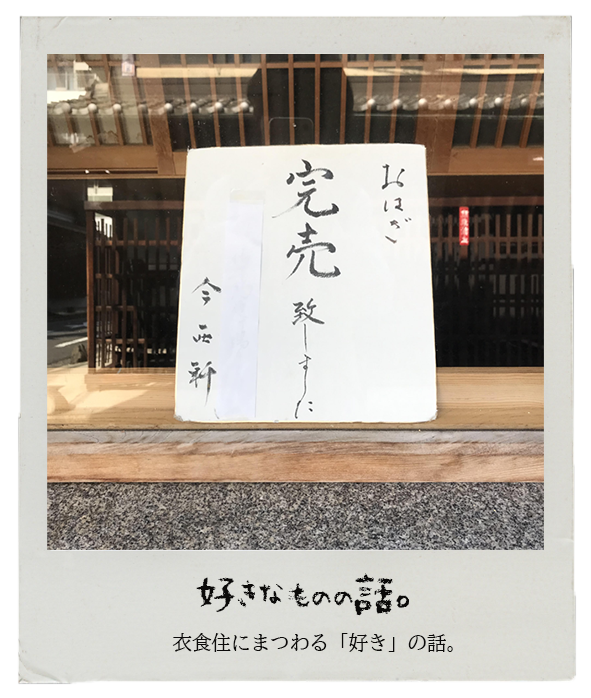 おはぎ
完売致しました
今西軒
好きなものの話。
衣食住にまつわる「好き」の話。